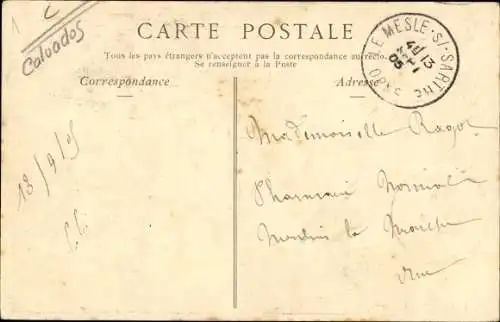 Calvados
CARTE POSTALE
Tous les pays étrangers n'acceptent pas la correspondance au recto.
Se renseigner à la Poste
Correspondance
Adresse
LE MESLE-S/-SARTHE
13
05
ORNE
Mademoiselle
Pharmacie Normale
Moulins la Marche
Orne
13/9/5